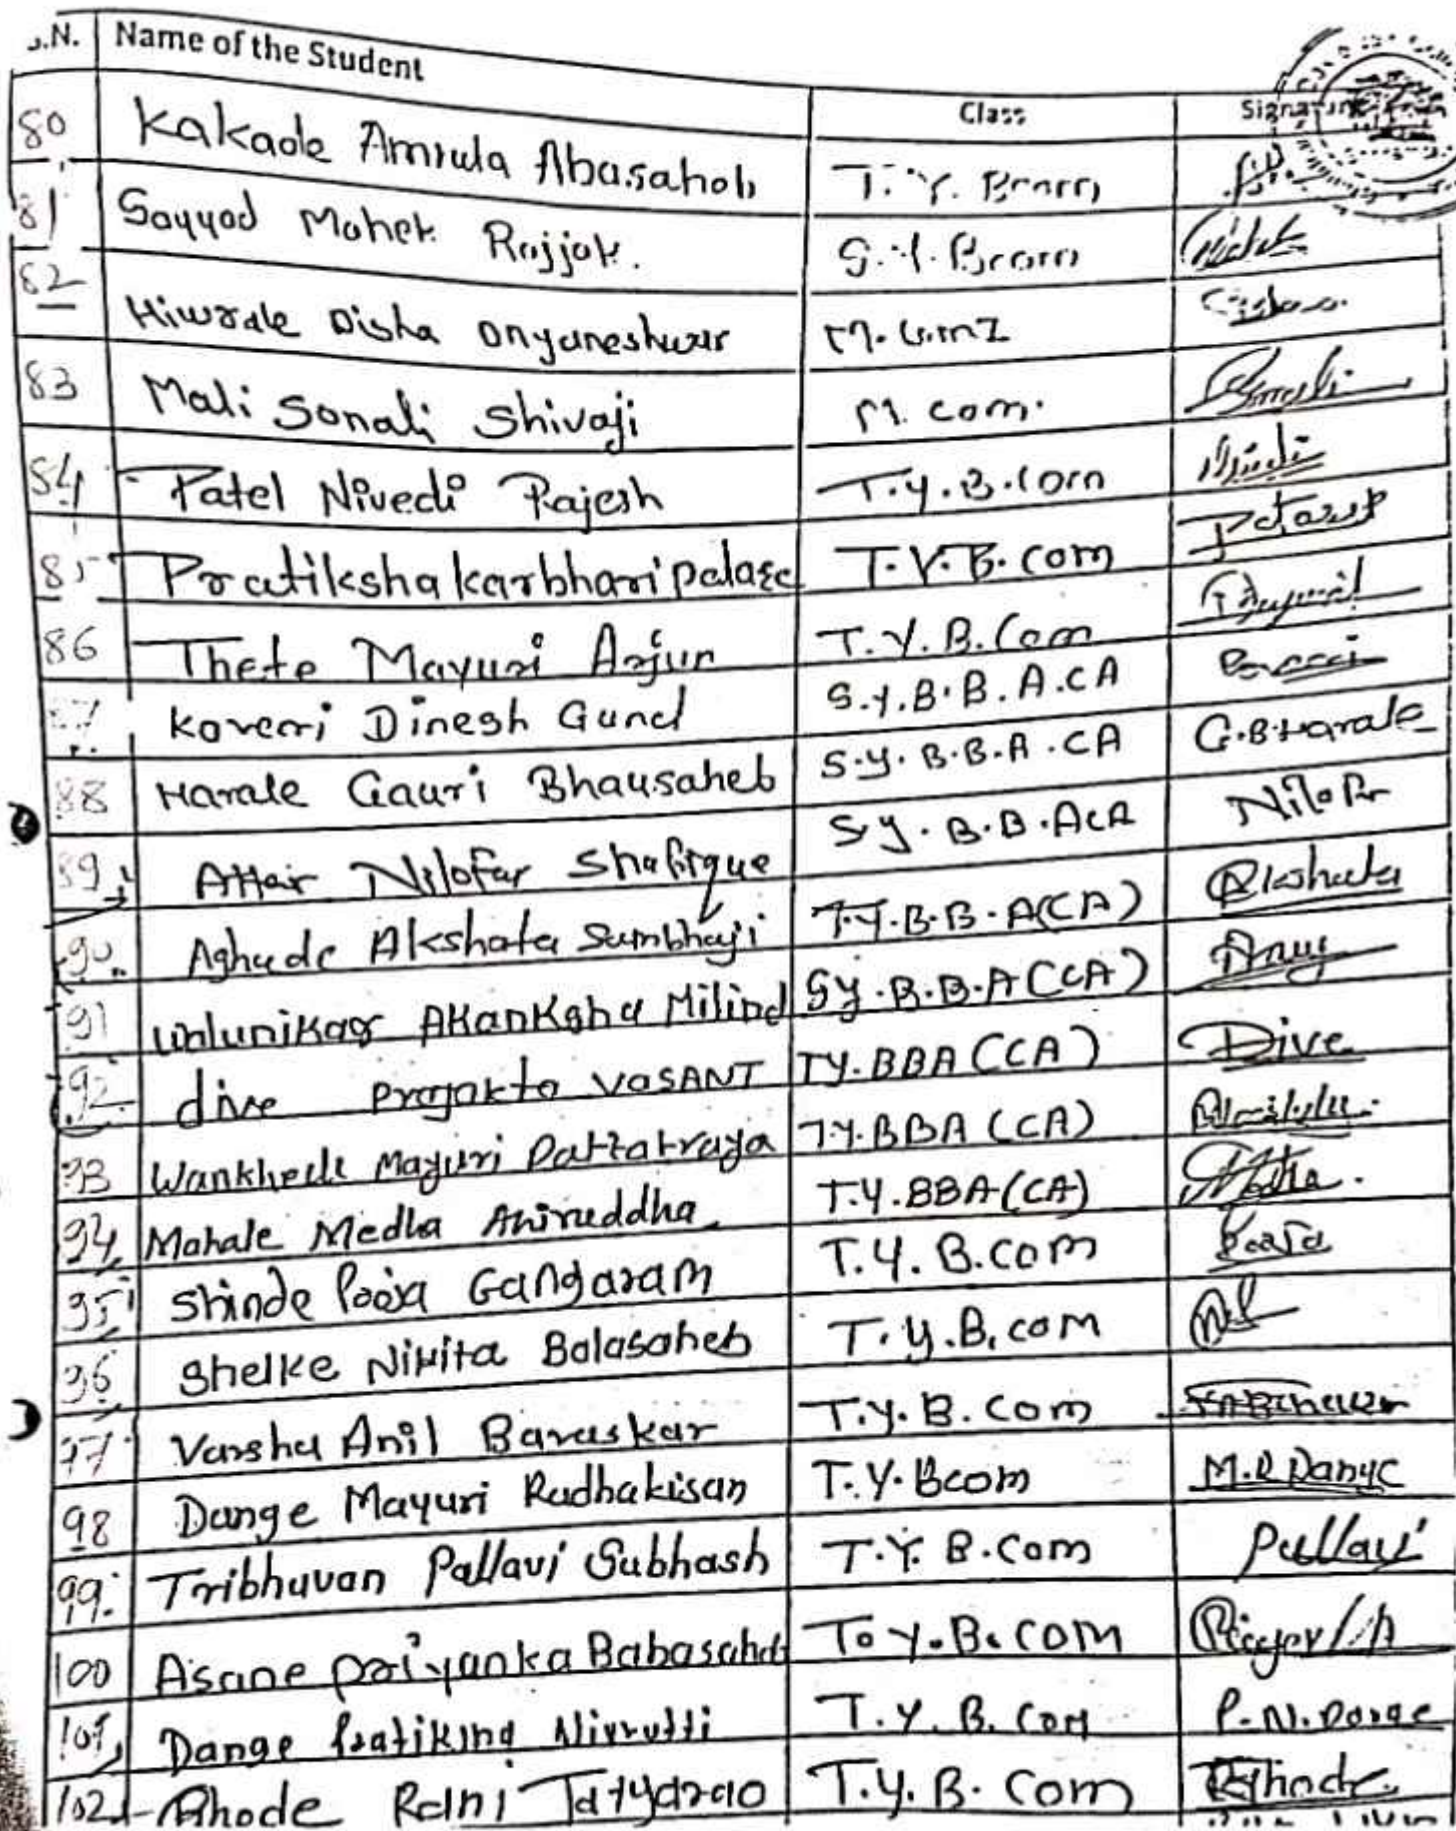 S.N. Name of the Student Class Signature
80 Kakade Amruta Abasaheb T.Y. Bcom
81 Sayyad Mahek Rajjak. S.Y. Bcom
82 Hiwrale Disha Dnyaneshwar M.com I
83 Mali Sonali Shivaji M. com. Sonali
84 Patel Nivedi Rajesh T.Y.B.Com
85 Pratiksha karbhari palase T.Y.B.com
86 Thete Mayuri Arjun T.Y.B.Com
87 Kaveri Dinesh Gund S.Y.B.B.A.CA
88 Harale Gauri Bhausaheb S.Y.B.B.A.CA G.B.Harale
89 Attar Nilofar Shafique S.Y.B.B.ACA Nilofar
90. Aghade Akshata Sambhaji T.Y.B.B.A(CA) Akshata
91 Walunikar Akanksha Milind SY.B.B.A(CA)
92 dive Prajakta VASANT TY.BBA(CA) Dive
93 Wankhede Mayuri Dattatraya T.Y.BBA(CA)
94 Mahale Medha Aniruddha T.Y.BBA(CA) Medha.
95 Shinde Pooja Gangaram T.Y.B.com Pooja
96 Shelke Nikita Balasaheb T.Y.B.com
97 Varsha Anil Bavaskar T.Y.B.Com
98 Dange Mayuri Radhakisan T.Y.Bcom M.R Dange
99. Tribhuvan Pallavi Subhash T.Y.B.Com Pallavi
100 Asane Priyanka Babasaheb T.Y.B.COM
101 Dange Pratiksha Nivrutti T.Y.B.Com P.N.Dange
102 Bhode Rani Tatyarao T.Y.B.Com